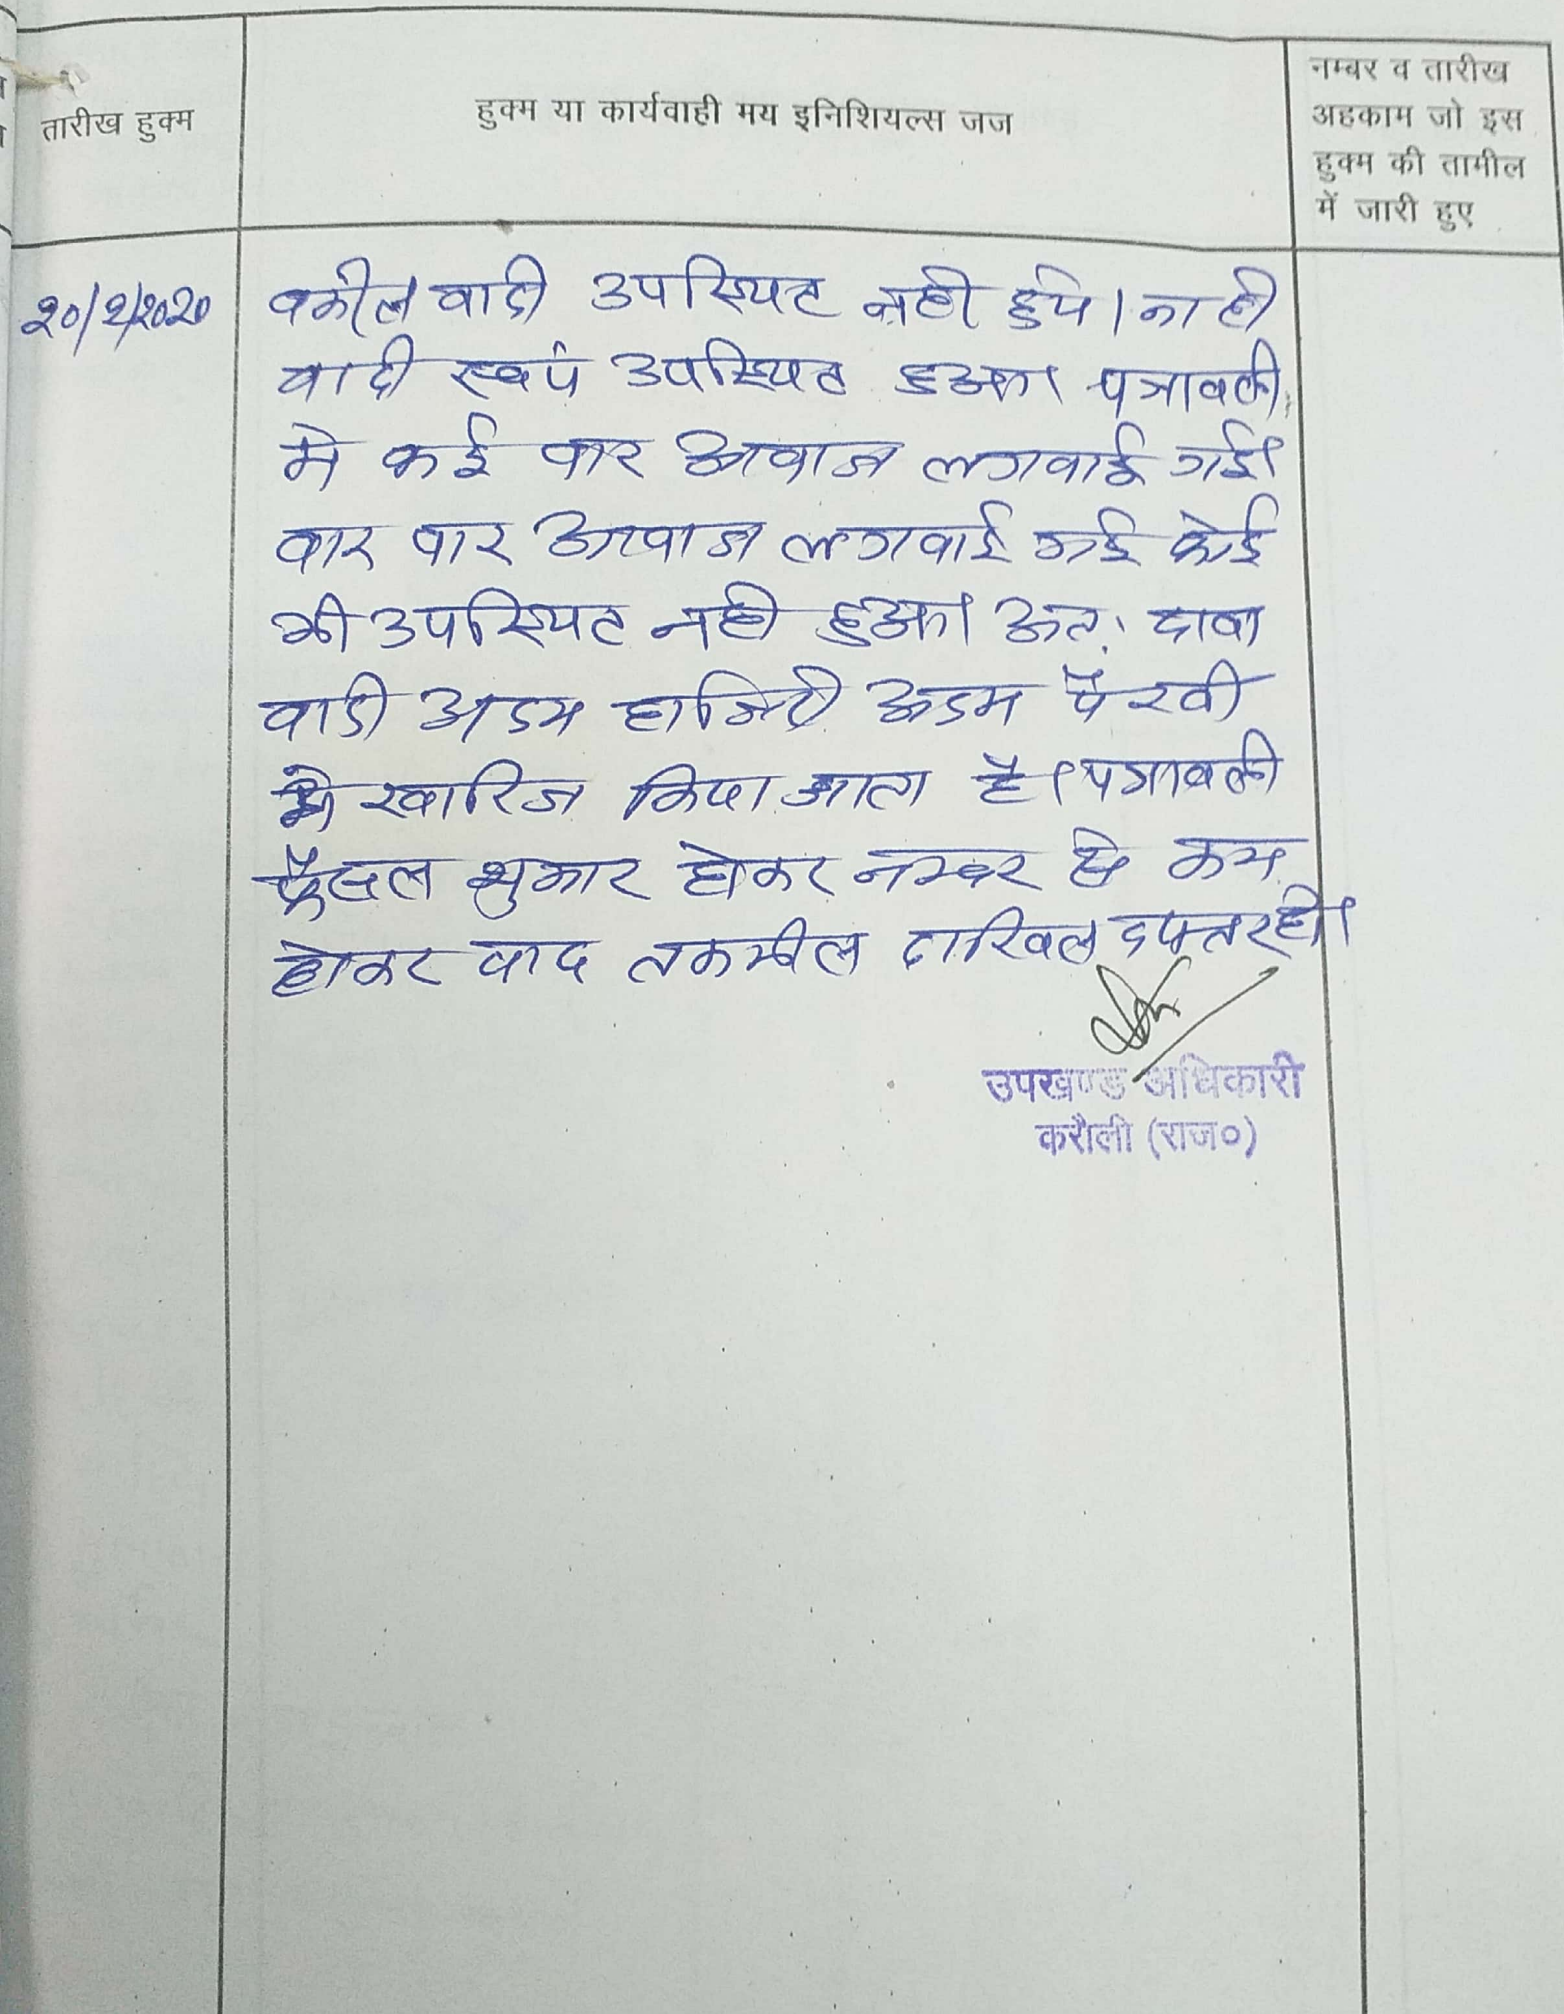 तारीख हुक्म
हुक्म या कार्यवाही मय इनिशियल्स जज
नम्बर व तारीख
अहकाम जो इस
हुक्म की तामील
में जारी हुए
20/2/2020
वकील वादी उपस्थित नही हुये। ना ही
वादी स्वयं उपस्थित हुआ। पत्रावली
मे कई वार आवाज लगवाई गई।
वार वार आवाज लगवाई गई कोई
भी उपस्थित नही हुआ। अत: दावा
वादी अदम हाजिरी अदम पैरवी
मे खारिज किया जाता है। पत्रावली
फैसल शुमार होकर नम्बर से कम
होकर वाद तकमील दाखिल दफ्तर हो।
उपखण्ड अधिकारी
करौली (राज०)